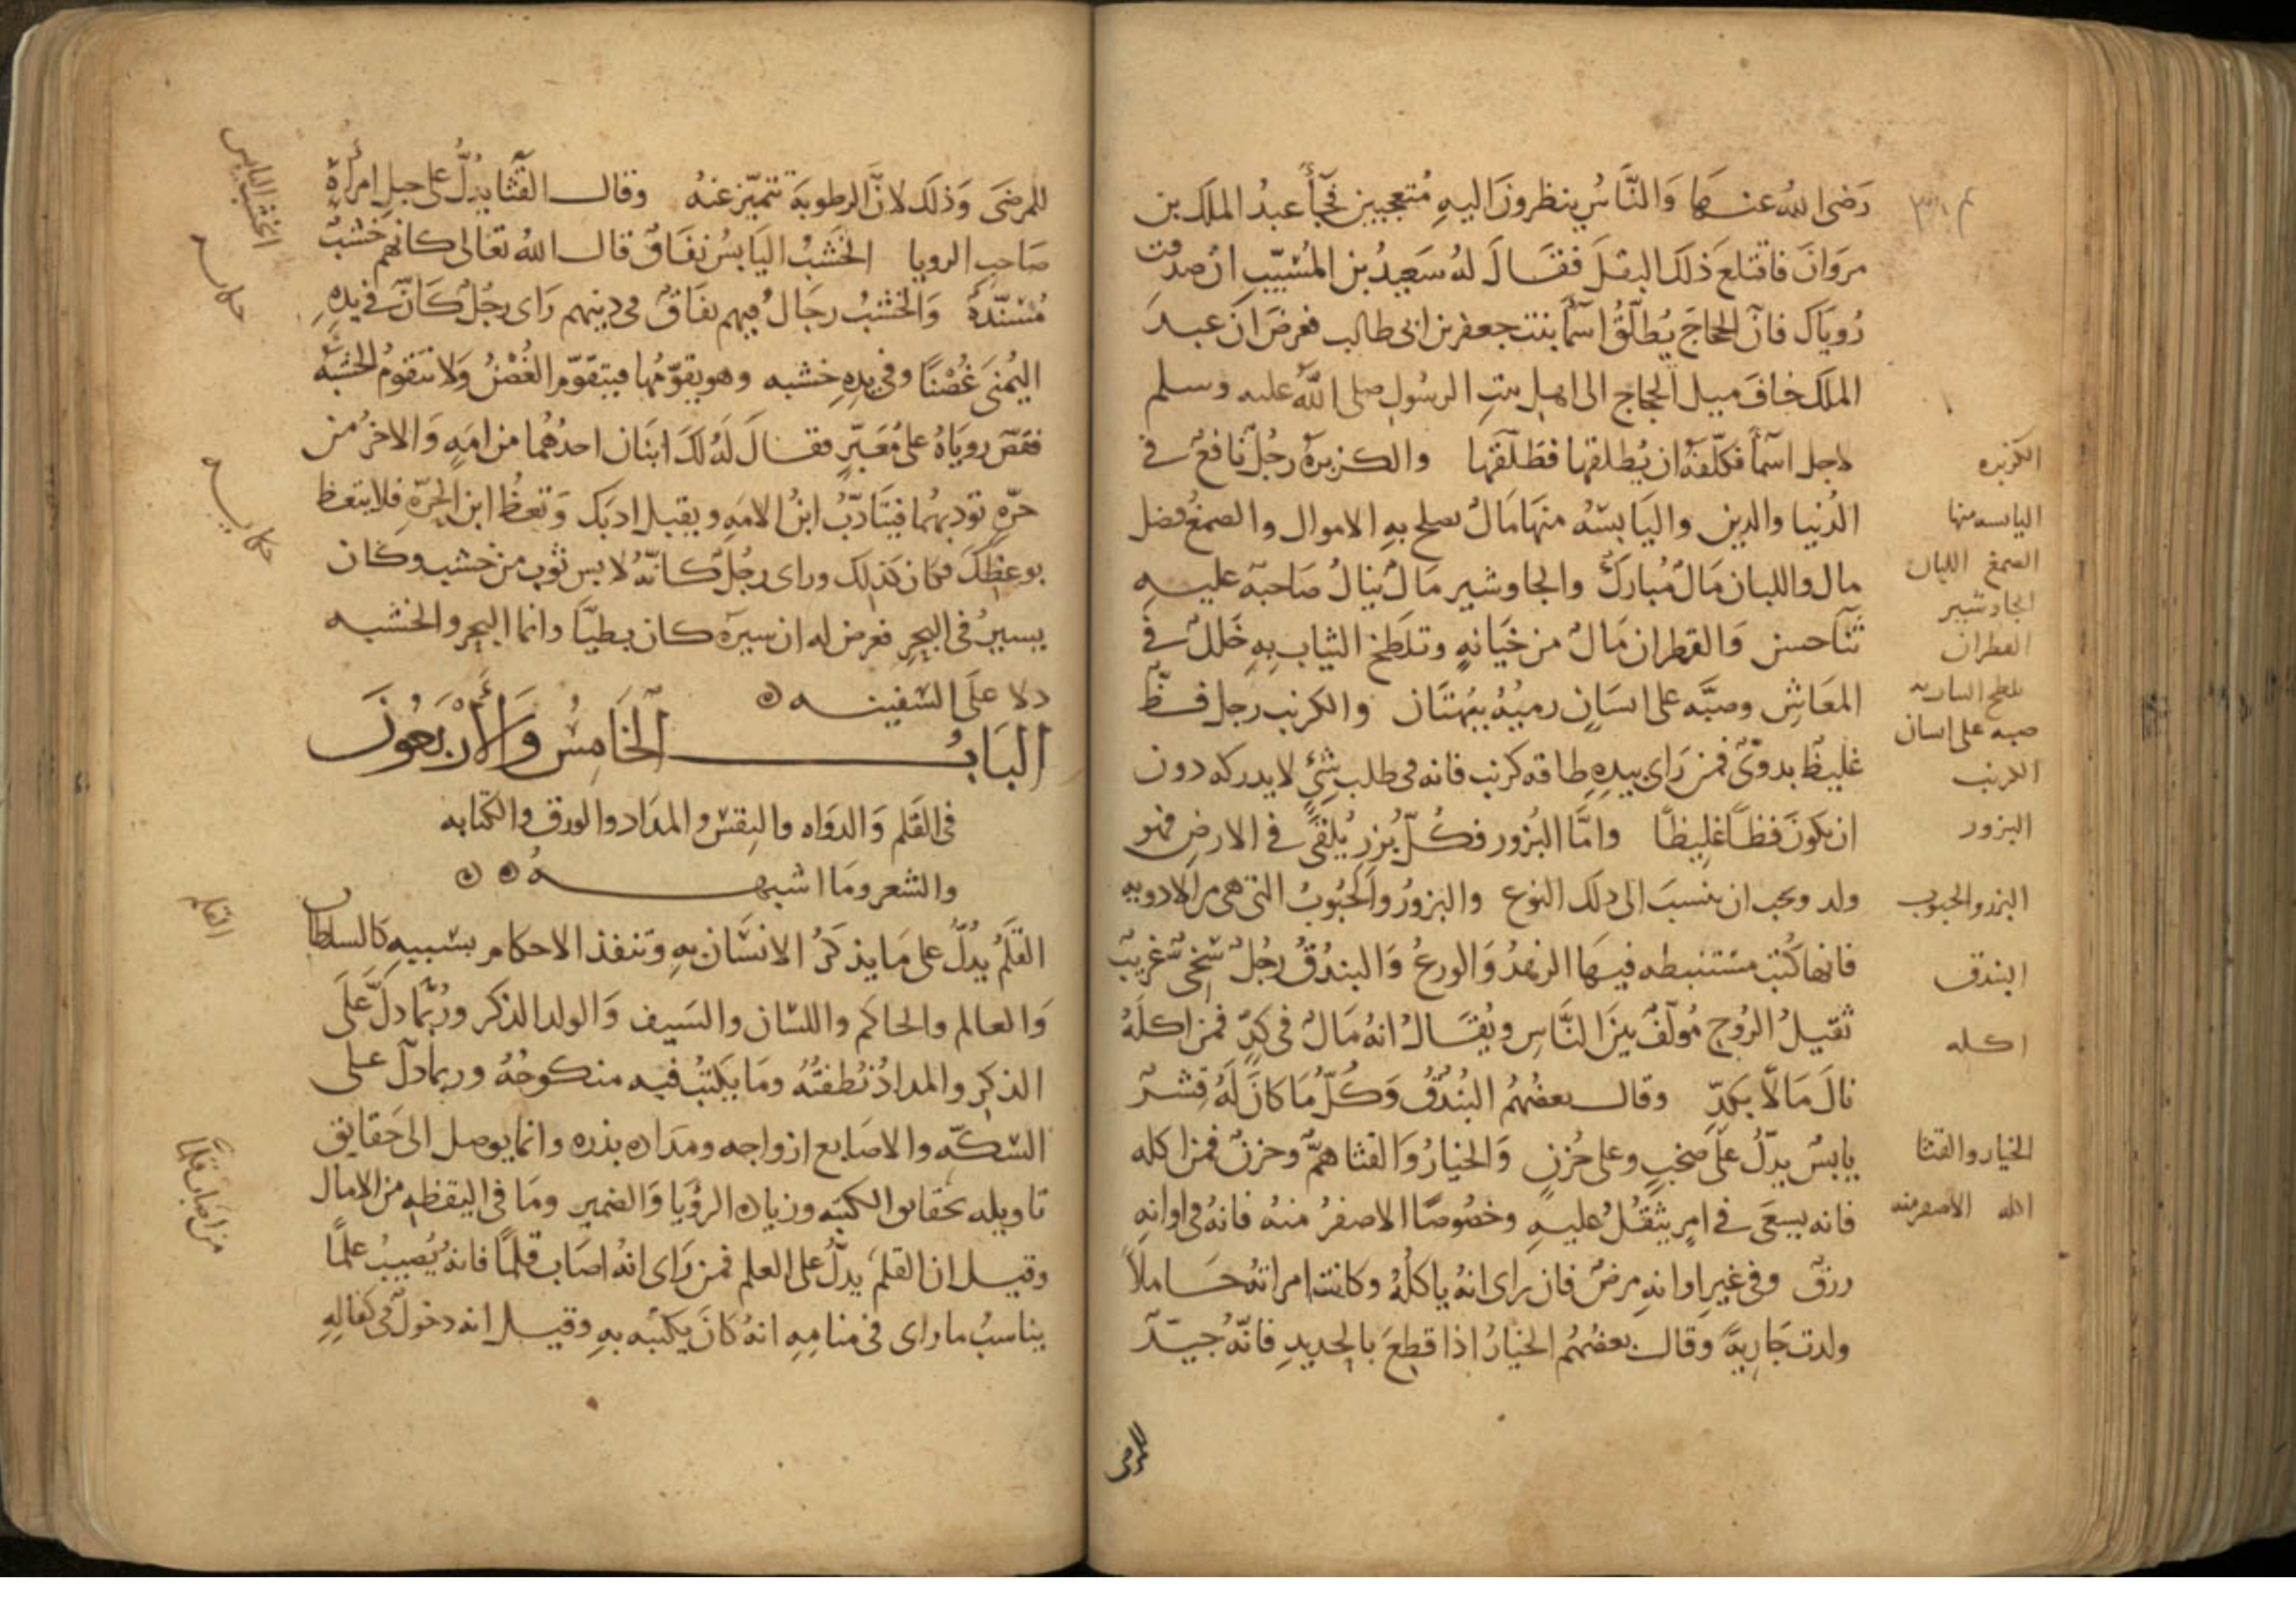 رَضى اللهُ عنهَا وَالنَّاسُ ينظرونَ اليهِ مُتعجبين فجَأَ عبدُ الملك بن
مروَانَ فاقتلعَ ذلكَ البقلَ فقَالَ لهُ سَعِيدُ بن المُسَيّبِ ان صدقت
رُويَاك فانّ الحجاجَ يُطلّقُ اسمَأَ بنت جعفر بن ابى طالب فعرضَ انّ عبدَ
الملك خافَ ميل الحجاج الى اهل بيتِ الرسُول صلى اللهُ عليه وسلم
لاجل اسمَأَ فكلّفهُ ان يُطلقها فطَلّقهَا والكزبرهُ رجُلٌ نَافعٌ فى
الدُنيا والدين واليَابسَهُ منهَا مَالٌ يصلح بهِ الاموال والصمغُ فضل
مال واللبان مَالٌ مُبَاركٌ والجاوشير مَالٌ ينالُ صَاحبَهُ عليهِ
ثنَأحسن وَالقطران مَالٌ من خيَانهٍ وتلطخ الثياب بهِ خَللٌ فى
المعَاشِ وصبّه على انسَانٍ رميُهُ ببُهتَان والكرنب رجل فظٌّ
غليظٌ بدوىٌّ فمن رَاى بيدِهِ طاقه كرنب فانه فى طلب شئٍ لا يدركه دون
ان يكونَ فظاً غليظًا وامَّا البُزور فكُلّ بُزرٍ يُلقَى فى الارضِ فهو
ولد ويجب ان ينسبَ الى ذلك النوع والبزورُ والحُبُوبُ التى هى من الادويه
فانها كُتبٌ مستنبطه فيهَا الزهدُ وَالورعُ وَالبندُقُ رجُلٌ سَخىٌّ غريبٌ
ثقيلُ الرُوحِ مُولفٌ بينَ النَّاسِ ويُقَالُ انهُ مَالٌ فى كدٍّ فمن اكلَهُ
نالَ مَالًا بكدٍّ وقال بعضُهُم البُندُقُ وَكُلُّ مَا كانَ لَهُ قِشرٌ
يابسٌ يدلُّ على صخبٍ وعلى حُزنٍ وَالخيَارُ وَالقثا همٌّ وحزنٌ فمن اكله
فانه يسعَى فى امرٍ يثقُلُ عليهِ وخصُوصًا الاصفرُ منهُ فانهُ فى اوانهِ
رزقٌ وفى غيرِ اوانهِ مرضٌ فان راى انهُ ياكلُهُ وكانت امراتهُ حَاملًا
ولدت جَاريةً وقال بعضهُم الخيارُ اذا قطعَ بالحديدِ فانّهُ جيّدٌ
للمرضَى
الكزبره
اليابسه منها
الصمغ اللبان
الجاوشير
القطران
صبه على انسان
الكرنب
البزور
البزر والحبوب
البندق
اكله
الخيار والقثا
اكله الاصفر منه
للمرضَى وَذلكَ لانَّ الرطوبَةَ تتميّز عنهُ وقال القثَّا يدُلّ على حبلِ امرأةِ
صَاحبِ الرويا الخَشَبُ اليَابسُ نفَاقٌ قال اللهُ تعَالى كانهم خشبٌ
مُسَنّدَةٌ وَالخشبُ رجَالٌ فيهم نفَاقٌ فى دينهم رَاى رجُلٌ كَانّ فى يدهِ
اليُمنَى غُصْنًا وفى يدِهِ خشبه وهو يقوّمُها فيتقَوّم الغُصْنُ وَلا تتقومُ الخشبَه
فقصّ رويَاهُ على مُعبّرٍ فقالَ لهُ لكَ ابنَان احدُهُما من امَهٍ وَالاخرُ من
حرّهٍ تودبهُما فيتَادّبُ ابنُ الامَهِ ويقبل ادبَك وَتعظُ ابن الحرّهِ فلا يتعظ
بوعظِكَ فكان كذلك وراى رجُلٌ كانّهُ لابس ثوب من خشب وكان
يسيرُ فى البحرِ فعرض له ان سيرَهُ كان بطيّا وانما البحر والخشبه
دلا علَى السَفينه
البَابُ الخَامِسُ وَالأَرْبَعُونَ
فى القَلم وَالدوَاه والنِقسِ والمدَاد والورق والكتابه
والشعر ومَا اشبههُ
القلَمُ يدُلّ على مَا يذكَرُ الانسَان بهِ وتنفذ الاحكام بسَببهِ كالسلطان
وَالعالم والحاكم واللسَان والسَيف وَالولد الذكر ورُبّمَا دلّ علَى
الذكرِ والمدادُ نُطفتُهُ ومَا يكتبُ فيه منكوحُهُ وربمَا دلّ على
السكّه والاصَابع ازواجه ومدَاده بذره وانما يوصل الى حَقايق
تاويله بحقايق الكتبَه وزياده الرؤيَا وَالضمير ومَا فى اليقظهِ من الامال
وقيل ان القلَمَ يدلُّ على العلم فمن رَاى انهُ اصَابَ قلمًا فانهُ يُصيبُ علمًا
يناسبُ ما راى فى منامِهِ انهُ كانَ يكتبُه بهِ وقيل انه دخولٌ فى كفالهِ
الخشب اليابس
حكايه
حكايه
القلم
من اصاب قلما